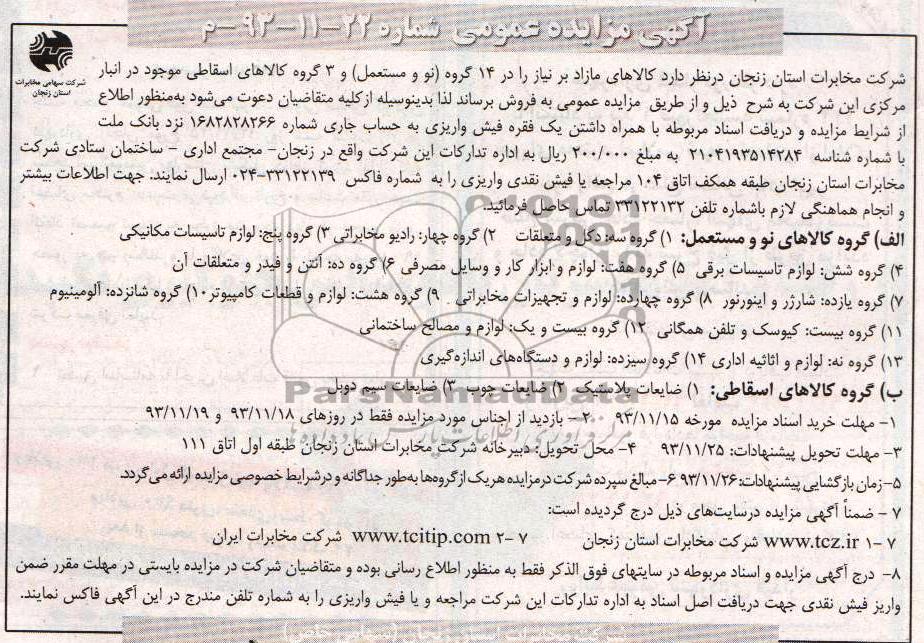 آگهی مزایده عمومی شماره ۲۲-۱۱-۹۳-م
شرکت سهامی مخابرات
استان زنجان
شرکت مخابرات استان زنجان درنظر دارد کالاهای مازاد بر نیاز را در ۱۴ گروه (نو و مستعمل) و ۳ گروه کالاهای اسقاطی موجود در انبار
مرکزی این شرکت به شرح ذیل و از طریق مزایده عمومی به فروش برساند لذا بدینوسیله ازکلیه متقاضیان دعوت می‌شود به‌منظور اطلاع
از شرایط مزایده و دریافت اسناد مربوطه با همراه داشتن یک فقره فیش واریزی به حساب جاری شماره ۱۶۸۲۸۲۸۲۶۶ نزد بانک ملت
با شماره شناسه ۲۱۰۴۱۹۳۵۱۴۲۸۴ به مبلغ ۲۰۰/۰۰۰ ریال به اداره تدارکات این شرکت واقع در زنجان- مجتمع اداری - ساختمان ستادی شرکت
مخابرات استان زنجان طبقه همکف اتاق ۱۰۴ مراجعه یا فیش نقدی واریزی را به شماره فاکس ۳۳۱۲۲۱۳۹-۰۲۴ ارسال نمایند. جهت اطلاعات بیشتر
و انجام هماهنگی لازم باشماره تلفن ۳۳۱۲۲۱۳۲ تماس حاصل فرمائید.
الف) گروه کالاهای نو و مستعمل: ۱) گروه سه: دکل و متعلقات ۲) گروه چهار: رادیو مخابراتی ۳) گروه پنج: لوازم تاسیسات مکانیکی
۴) گروه شش: لوازم تاسیسات برقی ۵) گروه هفت: لوازم و ابزار کار و وسایل مصرفی ۶) گروه ده: آنتن و فیدر و متعلقات آن
۷) گروه یازده: شارژر و اینورنور ۸) گروه چهارده: لوازم و تجهیزات مخابراتی ۹) گروه هشت: لوازم و قطعات کامپیوتر ۱۰) گروه شانزده: آلومینیوم
۱۱) گروه بیست: کیوسک و تلفن همگانی ۱۲) گروه بیست و یک: لوازم و مصالح ساختمانی
۱۳) گروه نه: لوازم و اثاثیه اداری ۱۴) گروه سیزده: لوازم و دستگاه‌های اندازه‌گیری
ب) گروه کالاهای اسقاطی: ۱) ضایعات پلاستیک ۲) ضایعات چوب ۳) ضایعات سیم دوبل
۱- مهلت خرید اسناد مزایده مورخه ۹۳/۱۱/۱۵ ۲- بازدید از اجناس مورد مزایده فقط در روزهای ۹۳/۱۱/۱۸ و ۹۳/۱۱/۱۹
۳- مهلت تحویل پیشنهادات: ۹۳/۱۱/۲۵ ۴- محل تحویل: دبیرخانه شرکت مخابرات استان زنجان طبقه اول اتاق ۱۱۱
۵-زمان بازگشایی پیشنهادات: ۹۳/۱۱/۲۶ ۶- مبالغ سپرده شرکت درمزایده هریک از گروه‌ها به‌طور جداگانه و درشرایط خصوصی مزایده ارائه می‌گردد.
۷ - ضمناً آگهی مزایده درسایت‌های ذیل درج گردیده است:
۷-۱ www.tcz.ir شرکت مخابرات استان زنجان ۷-۲ www.tcitip.com شرکت مخابرات ایران
۸- درج آگهی مزایده و اسناد مربوطه در سایتهای فوق الذکر فقط به منظور اطلاع رسانی بوده و متقاضیان شرکت در مزایده بایستی در مهلت مقرر ضمن
واریز فیش نقدی جهت دریافت اصل اسناد به اداره تدارکات این شرکت مراجعه و یا فیش واریزی را به شماره تلفن مندرج در این آگهی فاکس نمایند.
شرکت مخابرات استان زنجان (سهامی خاص)
ParsNamadData